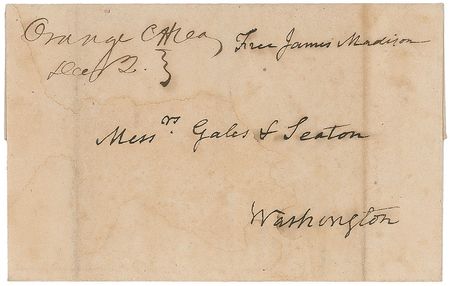 Orange CHVa
Dec 2.
Free James Madison
Messrs Gales & Seaton
Washington